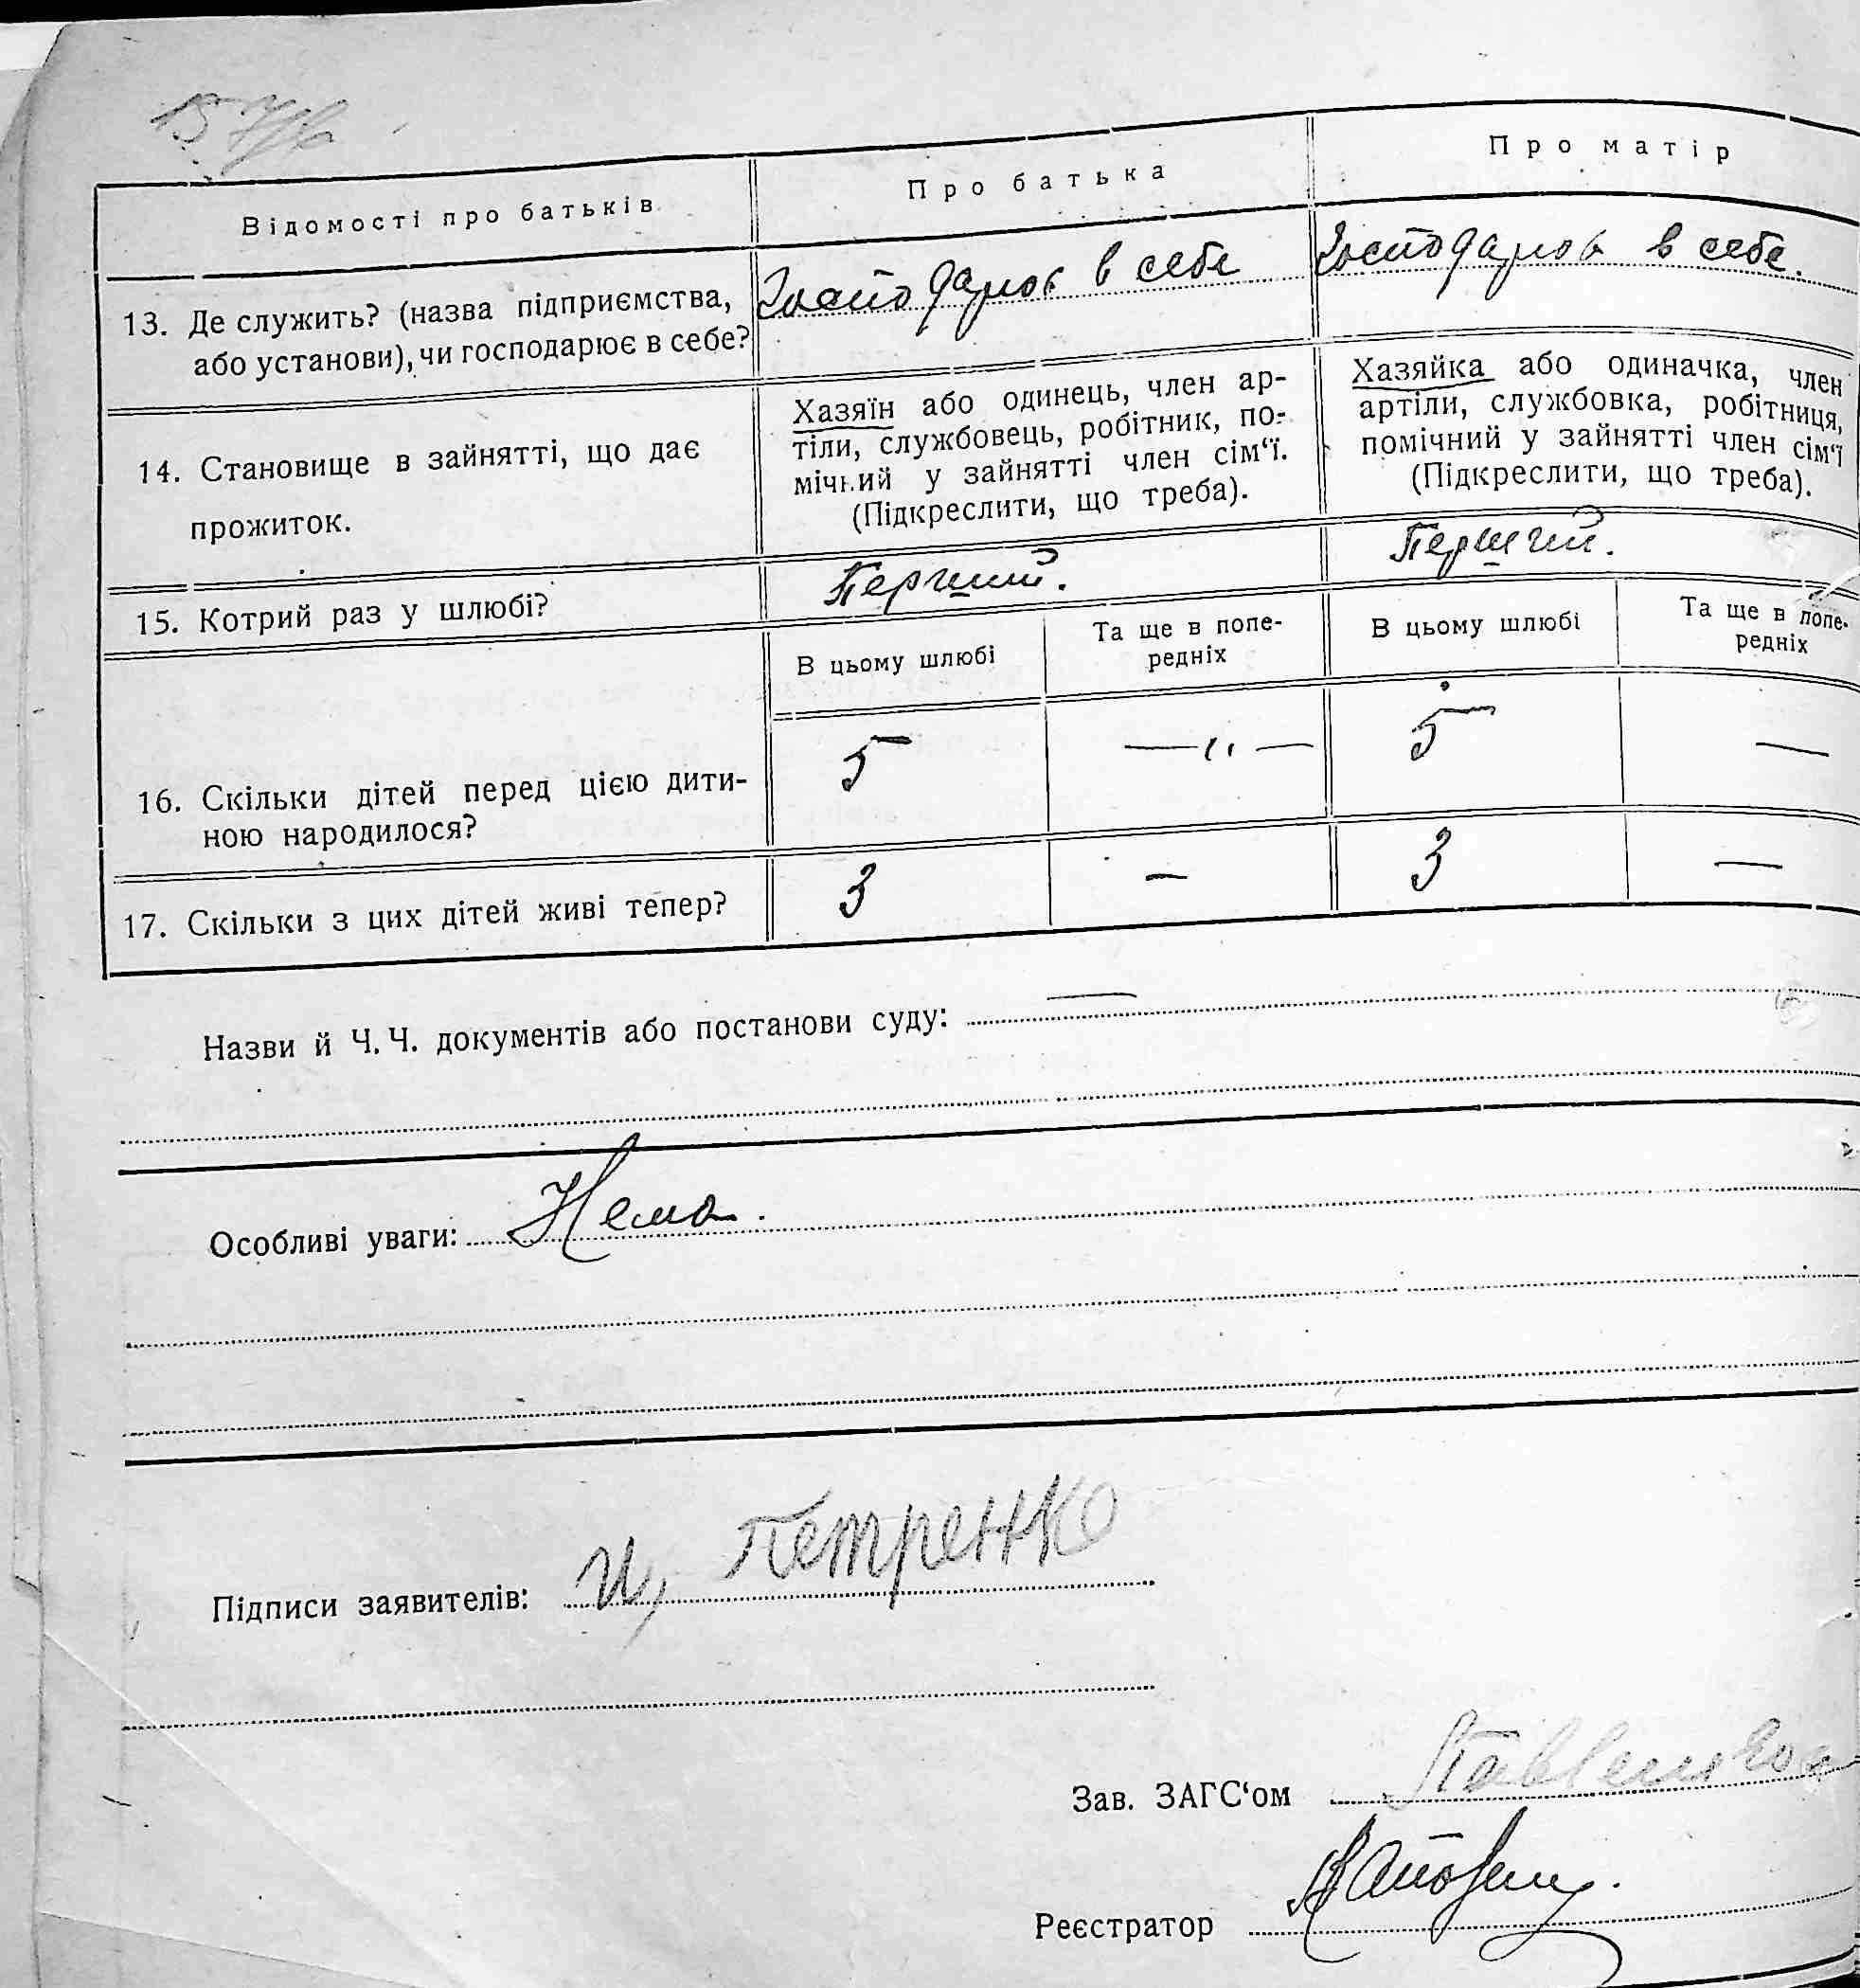 Відомості про батьків
Про батька
Про матір
13. Де служить? (назва підприємства,
або установи), чи господарює в себе?
Господарює в себе
Господарює в себе.
14. Становище в зайнятті, що дає
прожиток.
Хазяїн або одинець, член ар-
тіли, службовець, робітник, по-
мічний у зайнятті член сім‘ї.
(Підкреслити, що треба).
Хазяйка або одиначка, член
артіли, службовка, робітниця,
помічний у зайнятті член сім‘ї
(Підкреслити, що треба).
15. Котрий раз у шлюбі?
Перший.
Перший.
В цьому шлюбі
Та ще в попе-
редніх
В цьому шлюбі
Та ще в попе-
редніх
16. Скільки дітей перед цією дити-
ною народилося?
5 — „ — 5 —
17. Скільки з цих дітей живі тепер? 3 — 3 —
Назви й Ч. Ч. документів або постанови суду: —
Особливі уваги: Нема.
Підписи заявителів: И, Петренко
Зав. ЗАГС‘ом
Реєстратор